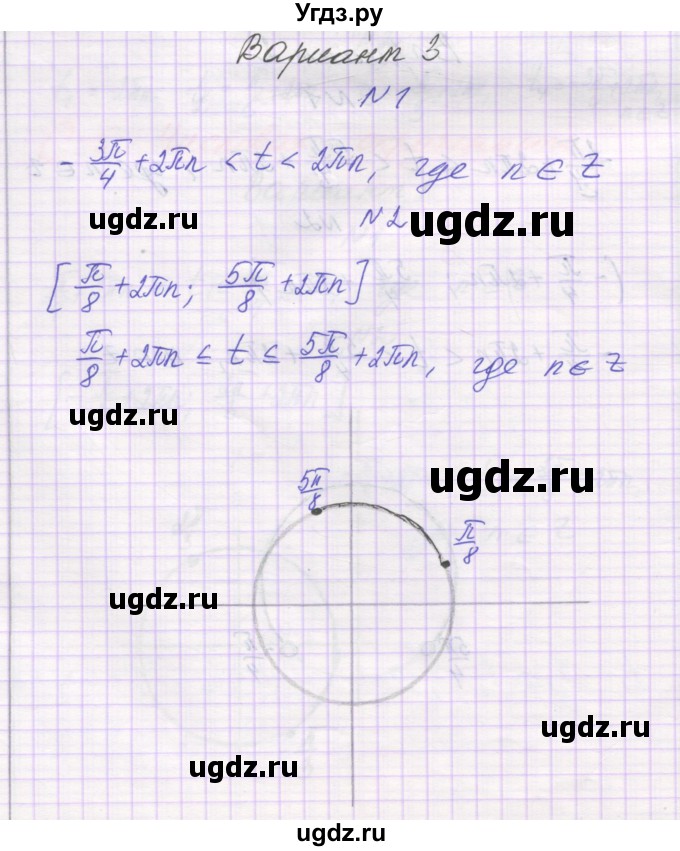 Угдз.ру
Вариант 3
№1
- 3π/4 + 2πn < t < 2πn, где n ∈ Z
ugdz.ru
ugdz.ru
№2
[π/8 + 2πn; 5π/8 + 2πn]
ugdz.ru
π/8 + 2πn ≤ t ≤ 5π/8 + 2πn, где n ∈ Z
ugdz.ru
ugdz.ru
5π/8
π/8
ugdz.ru
ugdz.ru
ugdz.ru
ugdz.ru